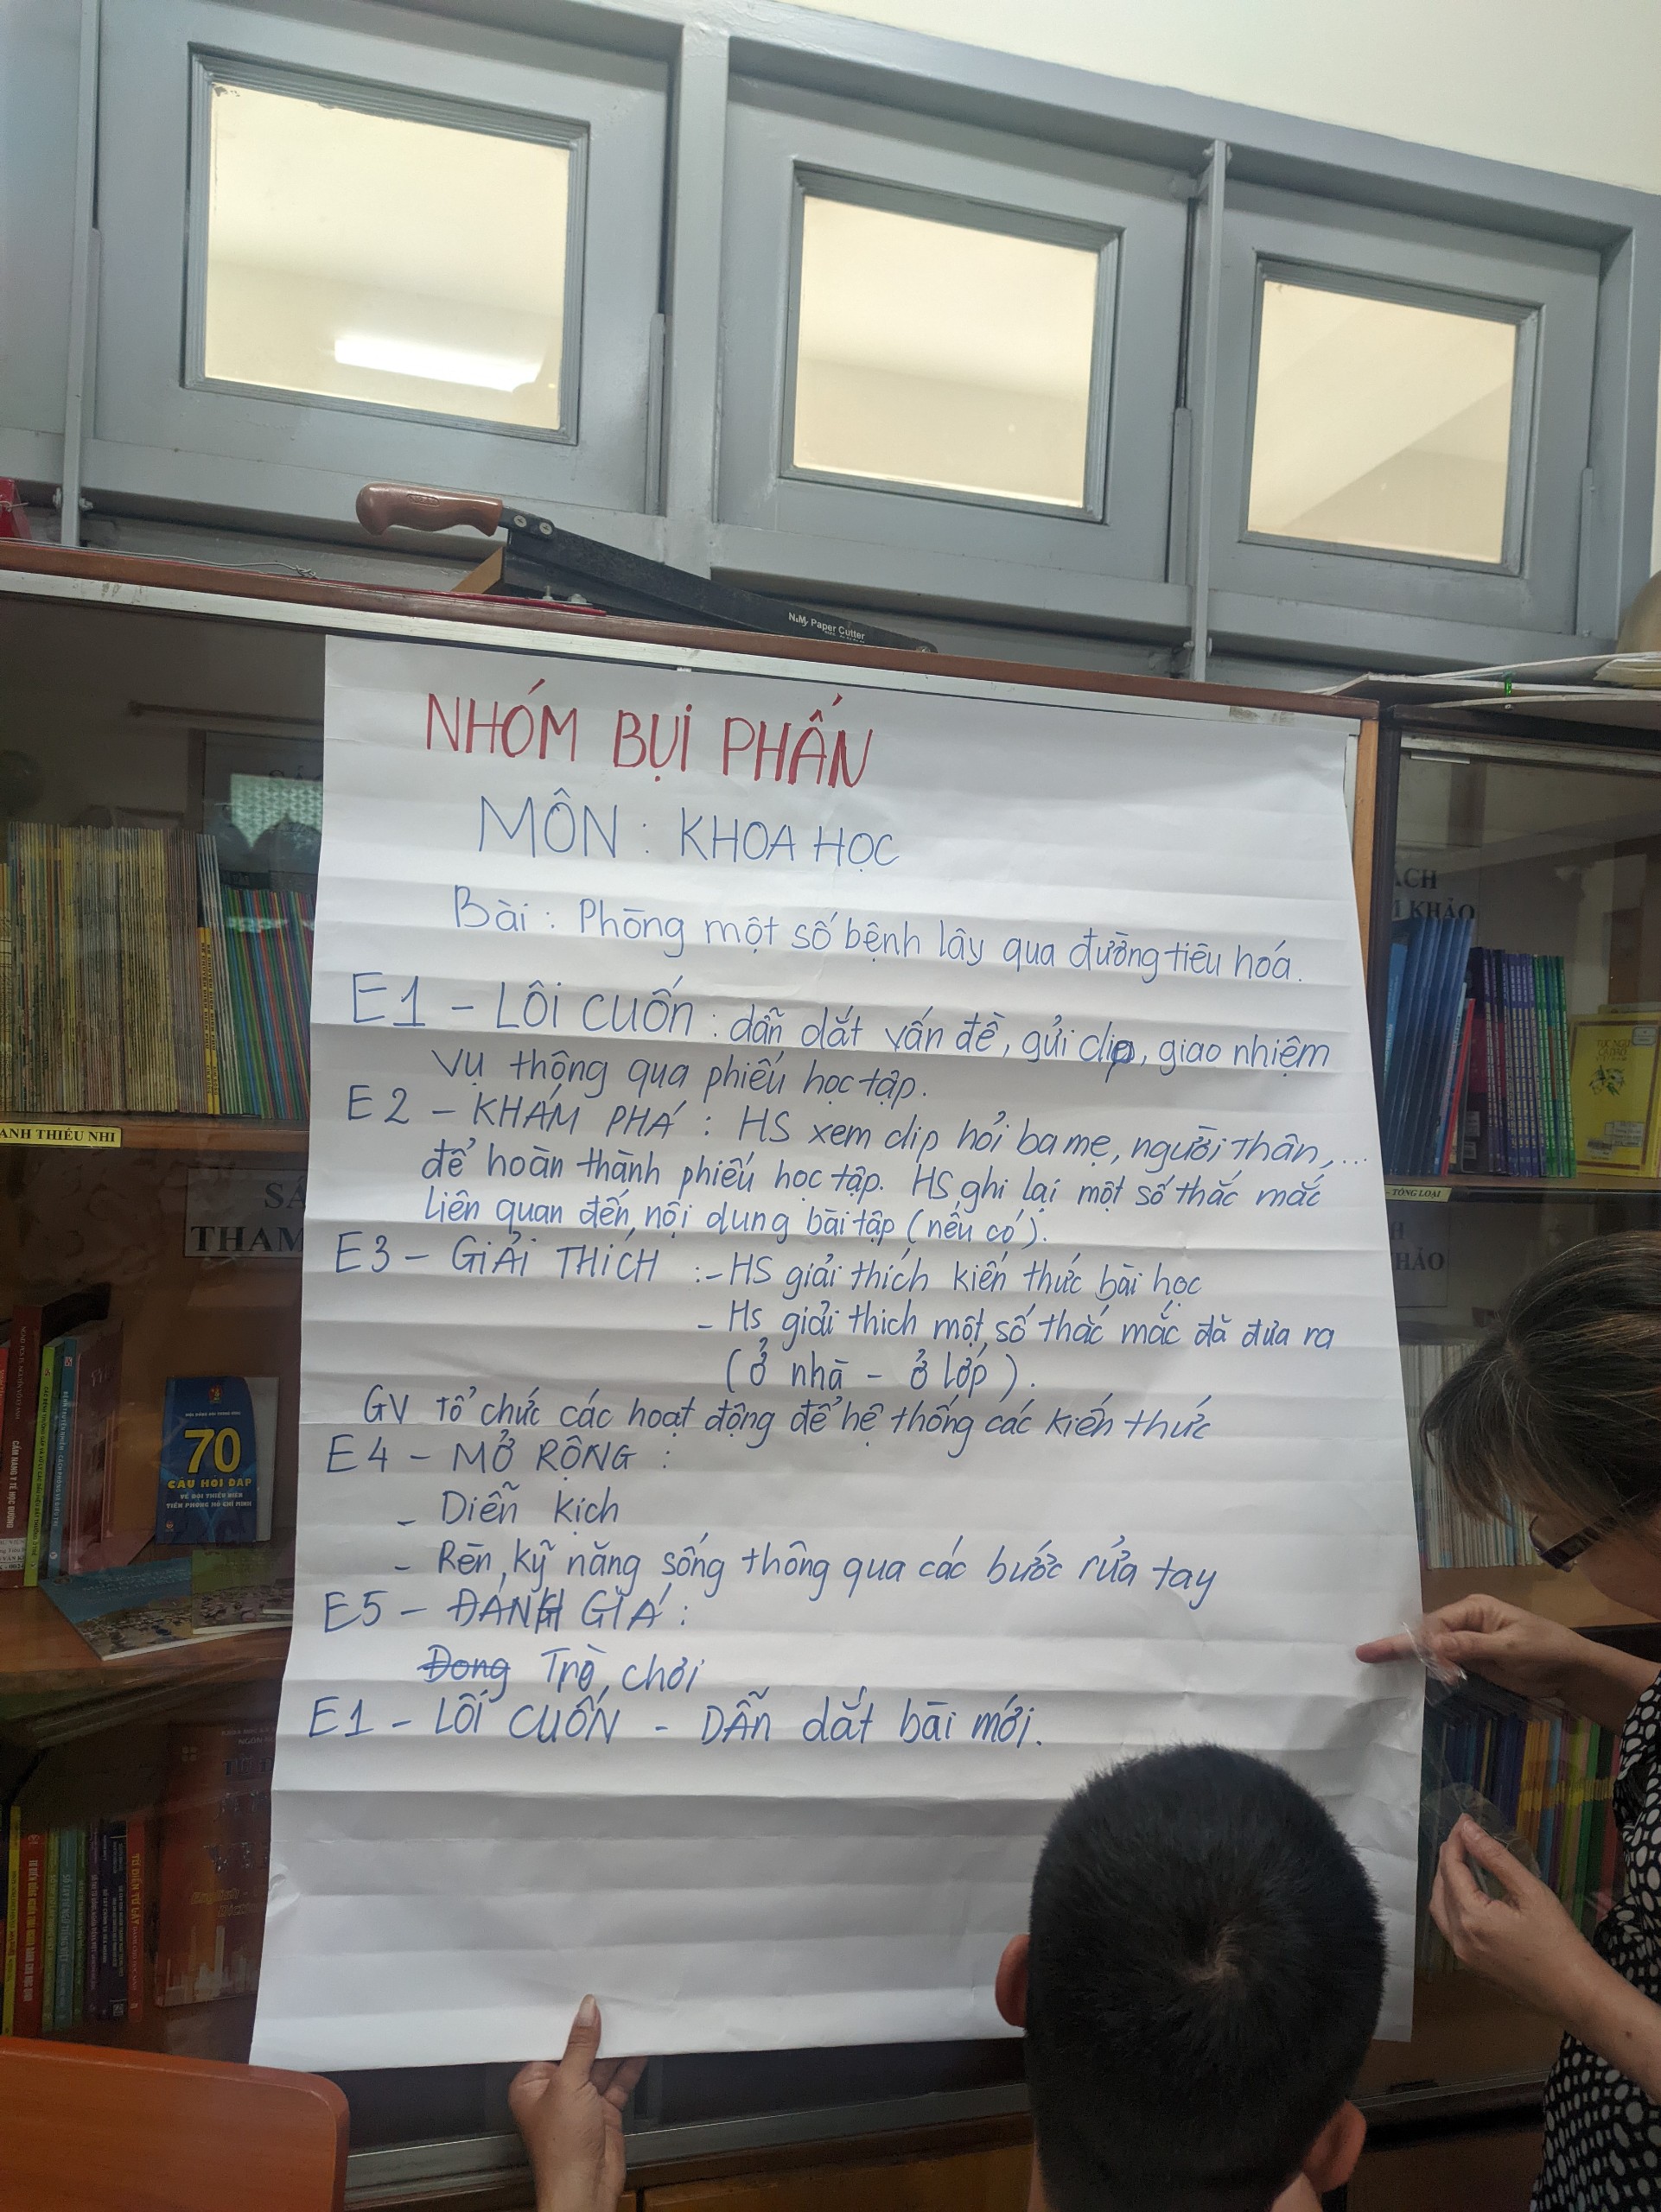 N.My Paper Cutter
NHÓM BỤI PHẤN
MÔN : KHOA HỌC
Bài : Phòng một số bệnh lây qua đường tiêu hoá.
E1 - LÔI CUỐN : dẫn dắt vấn đề, gửi clip, giao nhiệm
vụ thông qua phiếu học tập.
E2 - KHÁM PHÁ : HS xem clip hỏi ba mẹ, người thân,...
để hoàn thành phiếu học tập. HS ghi lại một số thắc mắc
liên quan đến nội dung bài tập (nếu có).
E3 - GIẢI THÍCH :- HS giải thích kiến thức bài học
- Hs giải thích một số thắc mắc đã đưa ra
(ở nhà - ở lớp).
GV tổ chức các hoạt động để hệ thống các kiến thức
E4 - MỞ RỘNG :
- Diễn kịch
- Rèn kỹ năng sống thông qua các bước rửa tay
E5 - ĐÁNH GIÁ :
Đong Trò chơi
E1 - LÔI CUỐN - DẪN dắt bài mới.
ANH THIẾU NHI
THAM
KHẢO
TỔNG LOẠI
70
CÂU HỎI ĐÁP
VỀ ĐỘI THIẾU NIÊN
TIỀN PHONG HỒ CHÍ MINH